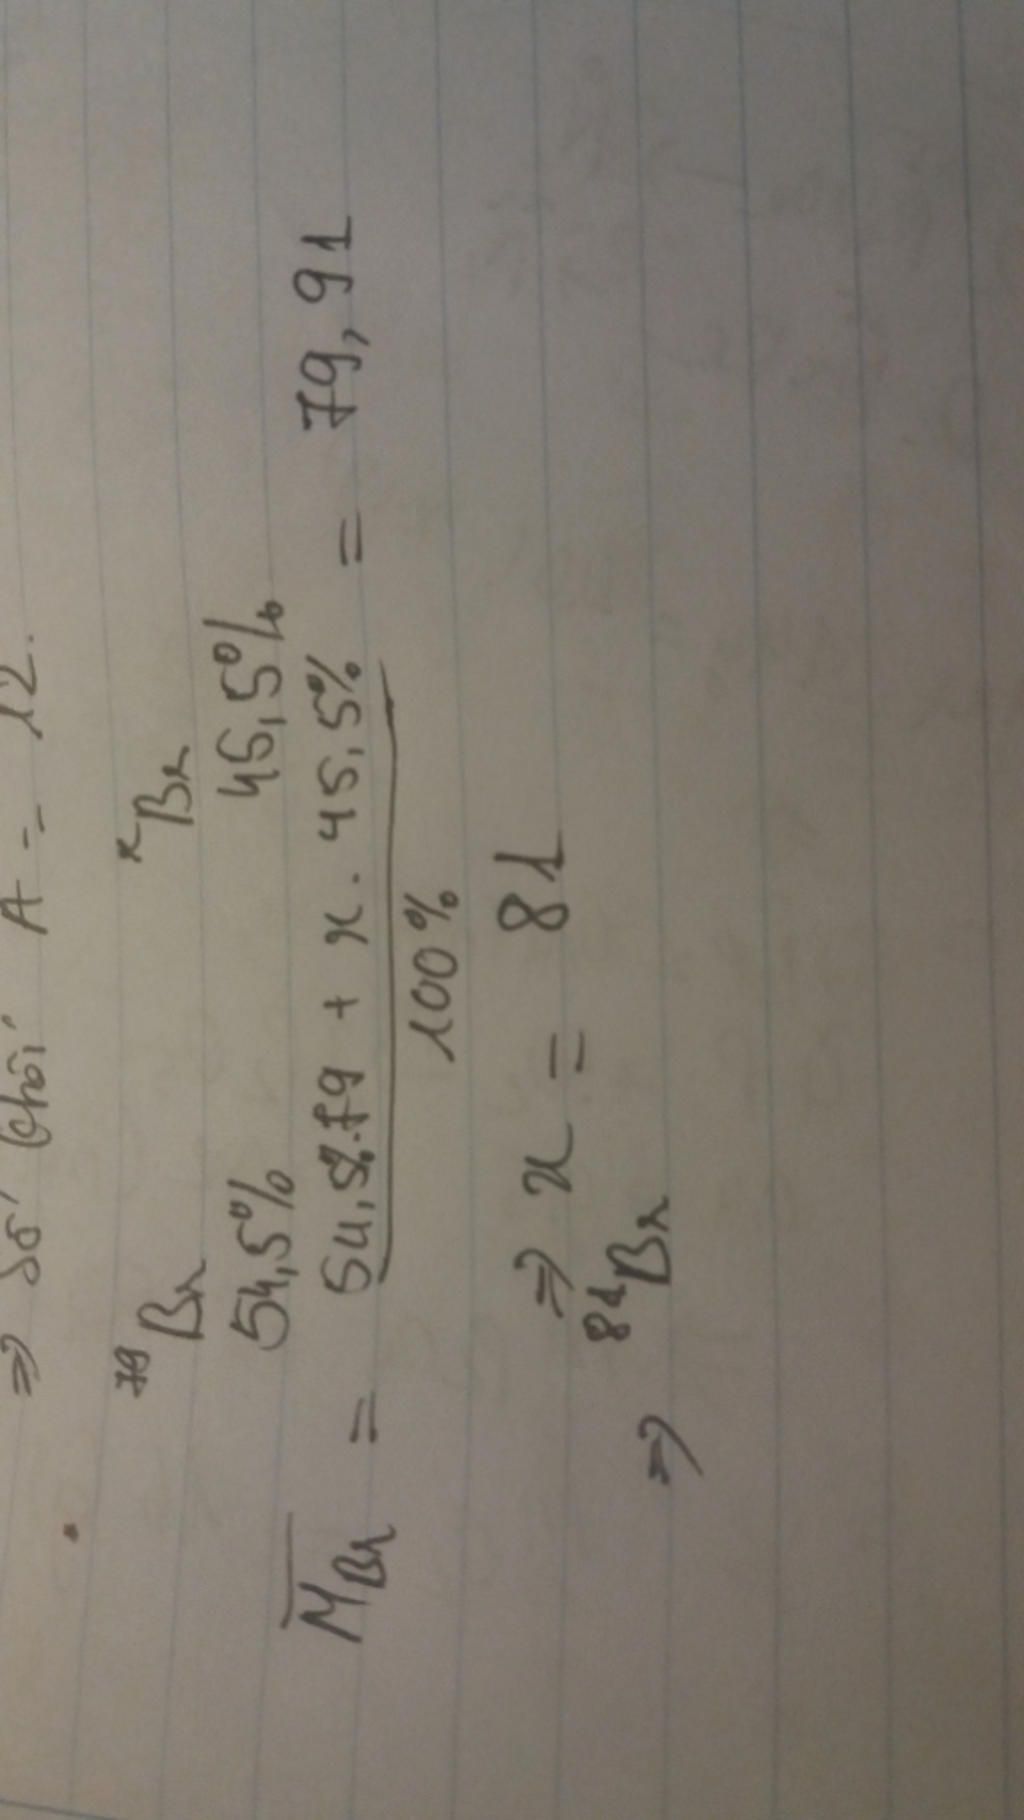 => Số khối A = 12.
⁷⁹Br ˣBr
54,5% 45,5%
M̅Br = 54,5%.79 + x . 45,5% / 100% = 79,91
=> x = 81
=> ⁸¹Br